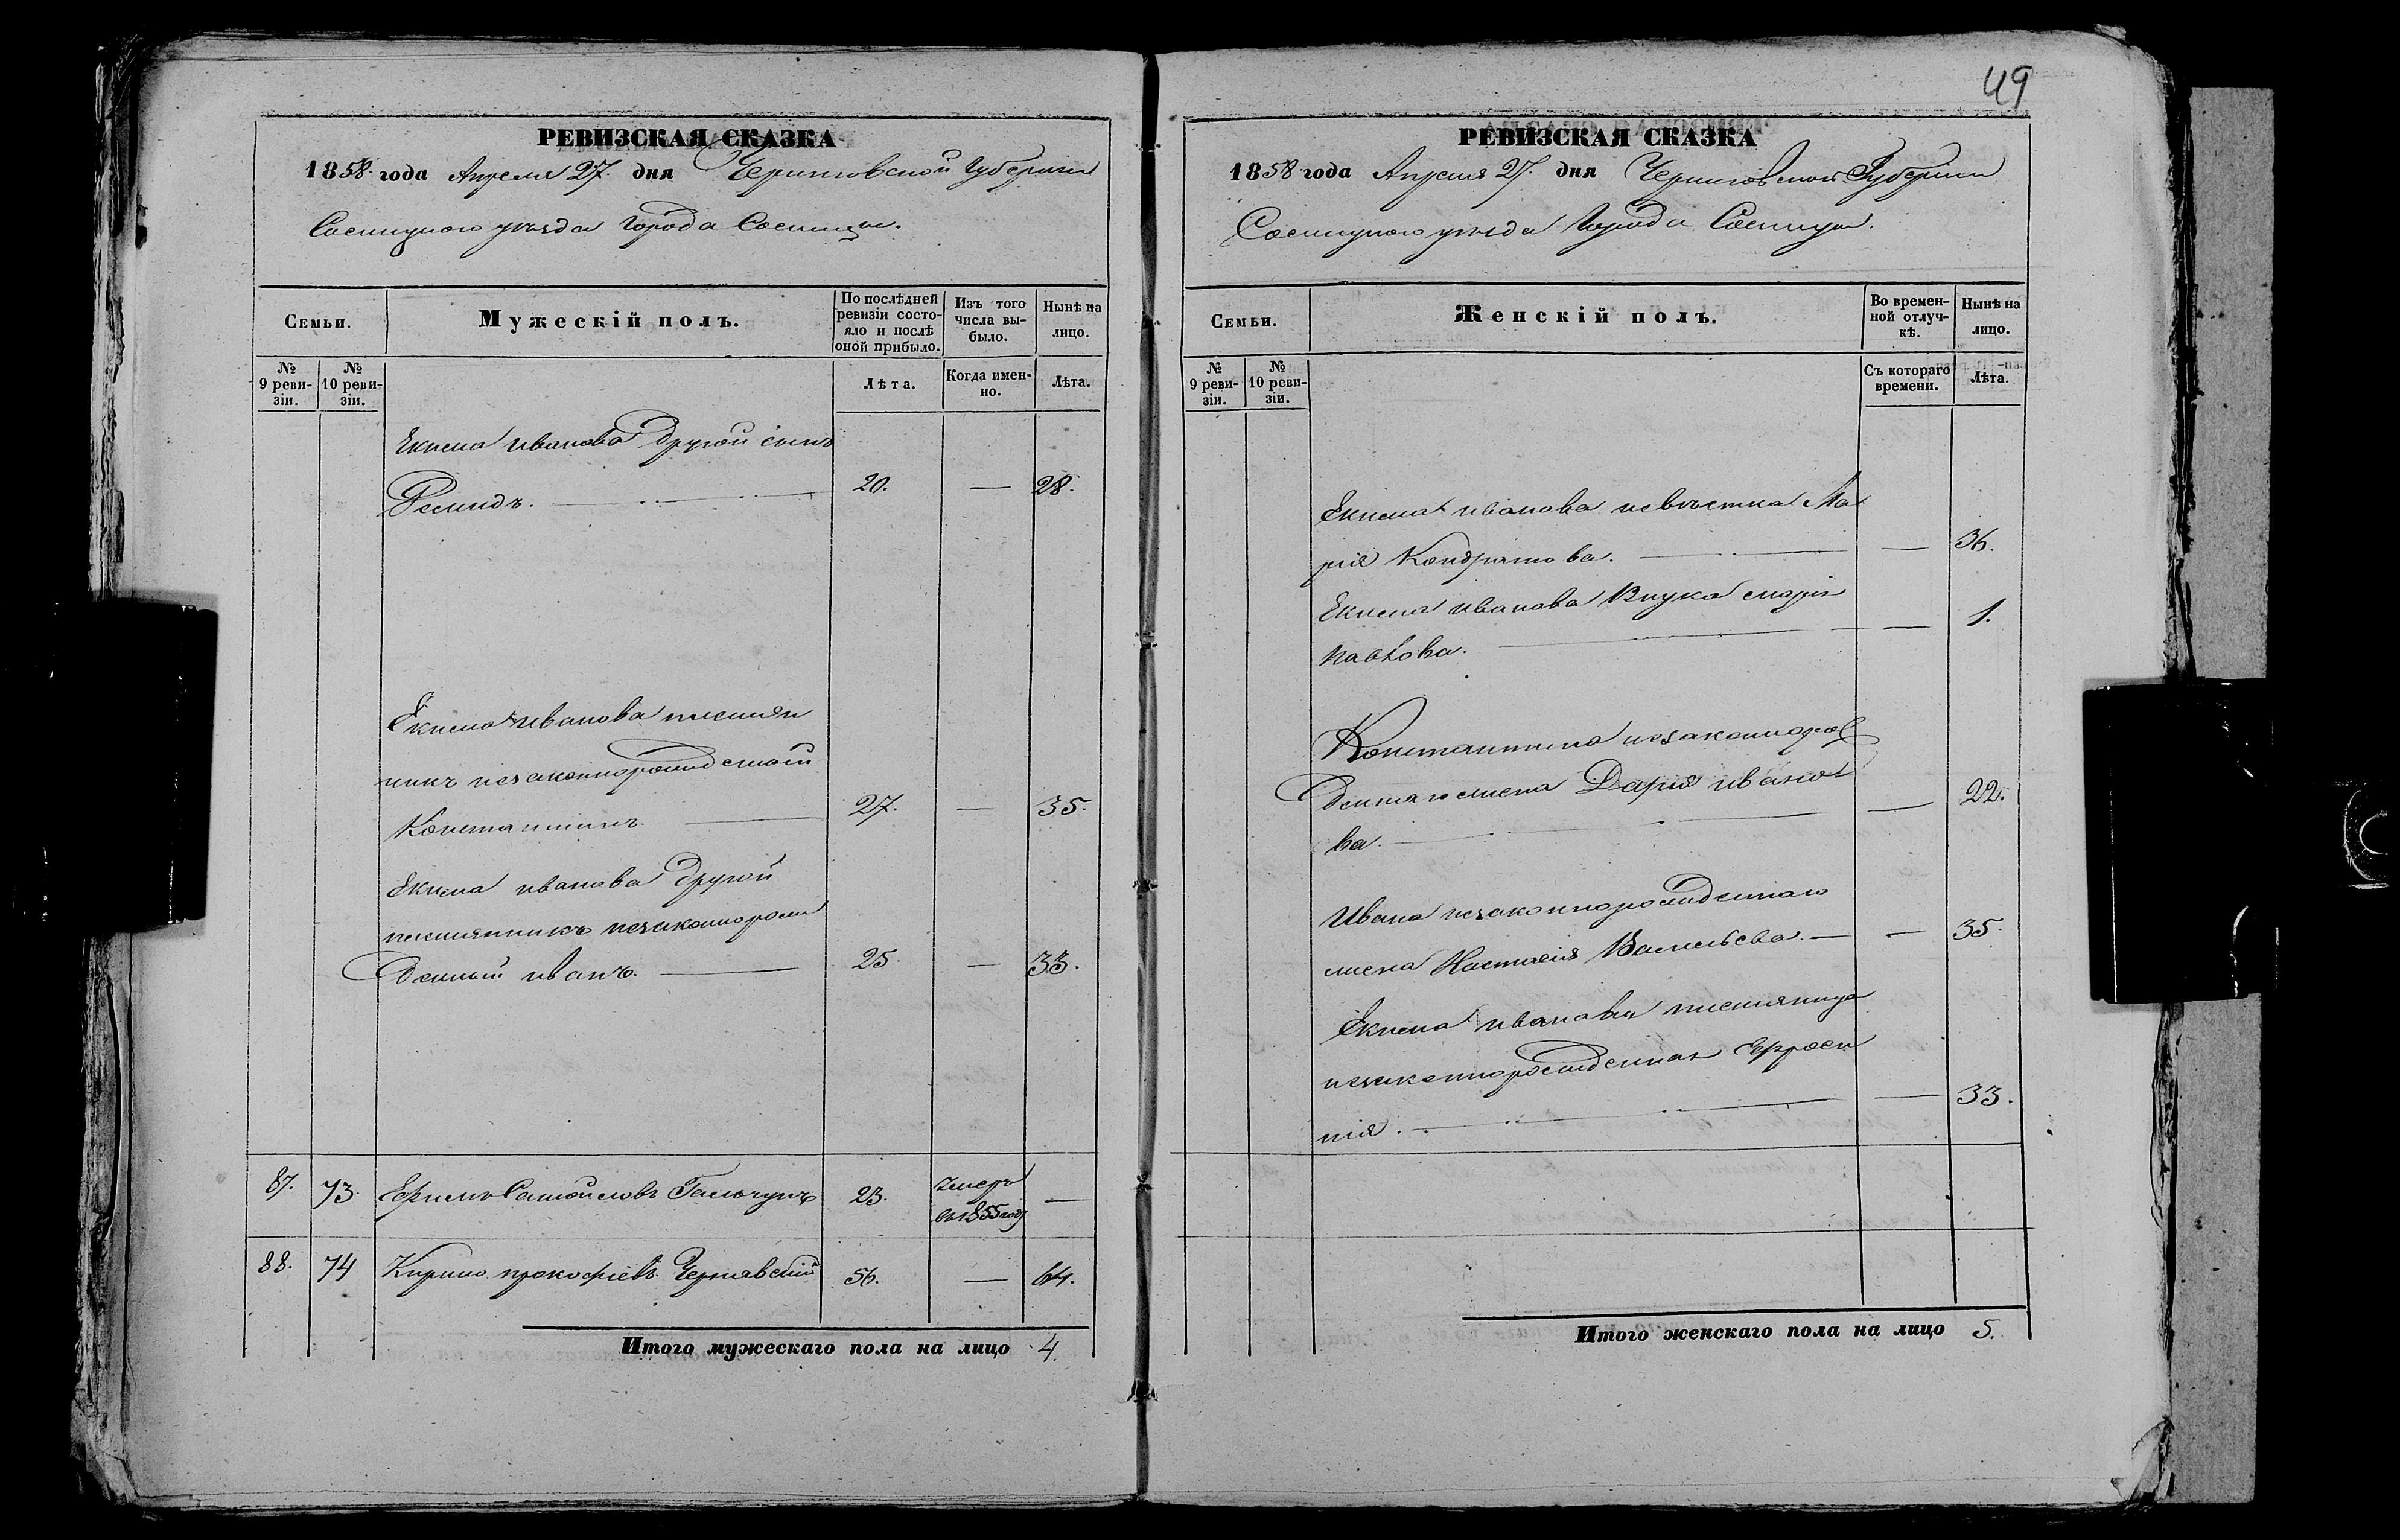 49
РЕВИЗСКАЯ СКАЗКА
1858 года Апреля 27. дня Черниговской Губернии
Сосницкого уѣзда Города Сосницы.
Семьи.
Мужескій полъ.
По послѣдней ревизіи состояло и послѣ оной прибыло.
Изъ того числа выбыло.
Нынѣ на лицо.
№ 9 ревизіи.
№ 10 ревизіи.
Лѣта.
Когда именно.
Лѣта.
Екима Иванова другой сынъ
20. — 28.
Екима Иванова племян
никъ незаконнорожденный
Константинъ 27. — 35.
Екима Иванова другой
племянникъ незаконнорож
денный Иванъ. 25. — 33.
87. 73. Ефимъ Самойловъ 23. Умеръ въ 1855 году —
88. 74 Кирило Прокофіевъ Чернявскій 56. — 64.
Итого мужескаго пола на лицо 4.
РЕВИЗСКАЯ СКАЗКА
1858 года Апреля 27. дня Черниговской Губернии
Сосницкого уѣзда Города Сосницы.
Семьи.
Женскій полъ.
Во временной отлучкѣ.
Нынѣ на лицо.
№ 9 ревизіи.
№ 10 ревизіи.
Съ котораго времени.
Лѣта.
Екима Иванова невѣстка Ма
рія Кондратова. — 36.
Екима Иванова внука Марія
Павлова. — 1.
Константина незаконнорож
деннаго жена Дарія Ивано
ва. — 22.
Ивана незаконнорожденнаго
жена Настасія Васильева. — 35.
Екима Иванова племянница
незаконнорожденная Ефроси
нія. — 33.
Итого женскаго пола на лицо 5.